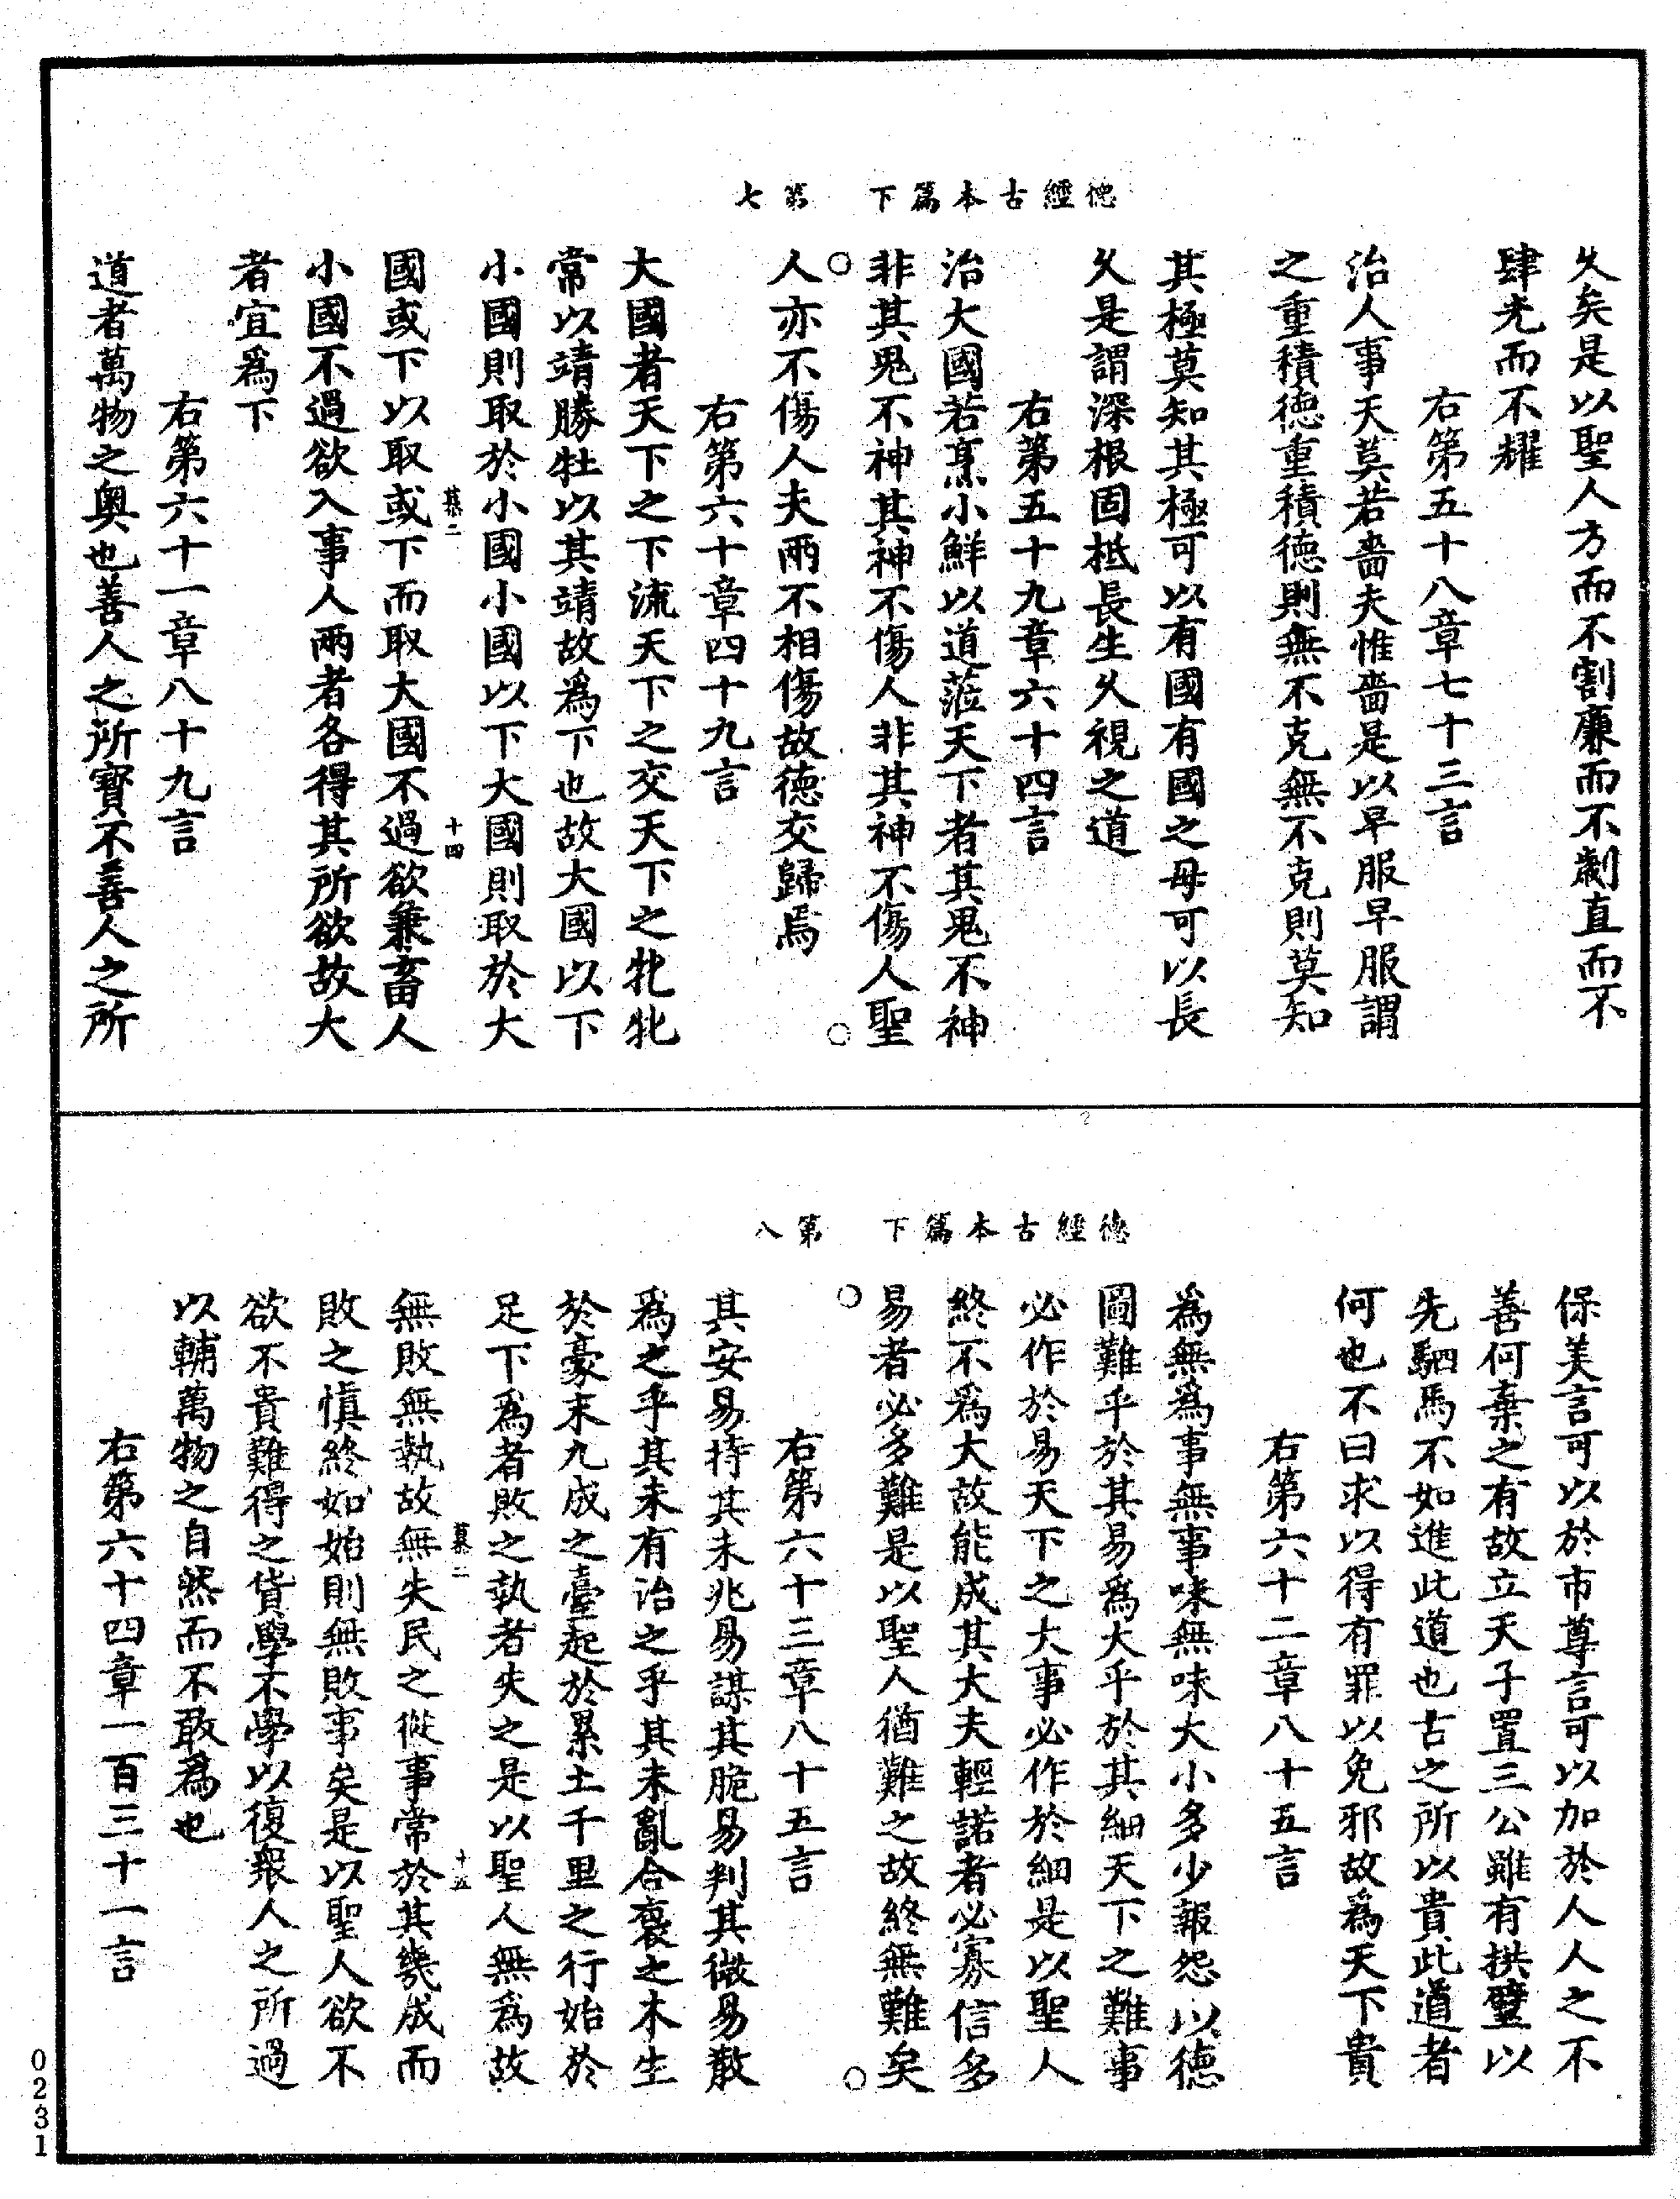 德經古本篇下　第七
久矣是以聖人方而不割廉而不劌直而不
肆光而不耀
右第五十八章七十三言
治人事天莫若嗇夫惟嗇是以早服早服謂
之重積德重積德則無不克無不克則莫知
其極莫知其極可以有國有國之母可以長
久是謂深根固柢長生久視之道
右第五十九章六十四言
治大國若烹小鮮以道蒞天下者其鬼不神
非其鬼不神其神不傷人非其神不傷人聖
人亦不傷人夫兩不相傷故德交歸焉
右第六十章四十九言
大國者天下之下流天下之交天下之牝牝
常以靖勝牡以其靖故爲下也故大國以下
小國則取於小國小國以下大國則取於大
慕二　十四
國或下以取或下而取大國不過欲兼畜人
小國不過欲入事人兩者各得其所欲故大
者宜爲下
右第六十一章八十九言
道者萬物之奧也善人之所寶不善人之所
德經古本篇下　第八
保美言可以於市尊言可以加於人人之不
善何棄之有故立天子置三公雖有拱璧以
先駟馬不如進此道也古之所以貴此道者
何也不曰求以得有罪以免邪故爲天下貴
右第六十二章八十五言
爲無爲事無事味無味大小多少報怨以德
圖難乎於其易爲大乎於其細天下之難事
必作於易天下之大事必作於細是以聖人
終不爲大故能成其大夫輕諾者必寡信多
易者必多難是以聖人猶難之故終無難矣
右第六十三章八十五言
其安易持其未兆易謀其脆易判其微易散
爲之乎其未有治之乎其未亂合裒之木生
於豪末九成之臺起於累土千里之行始於
足下爲者敗之執者失之是以聖人無爲故
慕二　十五
無敗無執故無失民之從事常於其幾成而
敗之愼終如始則無敗事矣是以聖人欲不
欲不貴難得之貨學不學以復衆人之所過
以輔萬物之自然而不敢爲也
右第六十四章一百三十一言
0231